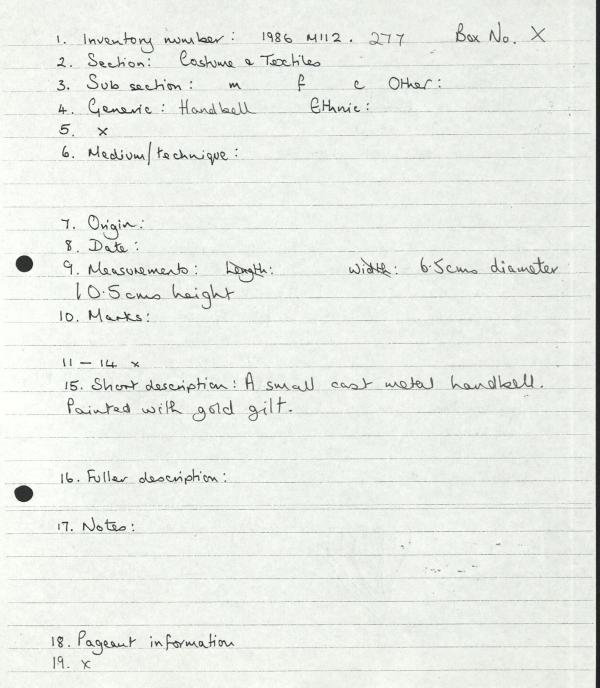 1. Inventory number: 1986 M112. 277 Box No. X
2. Section: Costume & Textiles
3. Sub section: m f c Other:
4. Generic: Handbell Ethnic:
5. x
6. Medium/technique:
7. Origin:
8. Date:
9. Measurements: Length: width: 6.5cms diameter
10.5cms height
10. Marks:
11 - 14 x
15. Short description: A small cast metal handbell.
Painted with gold gilt.
16. Fuller description:
17. Notes:
18. Pageant information
19. x